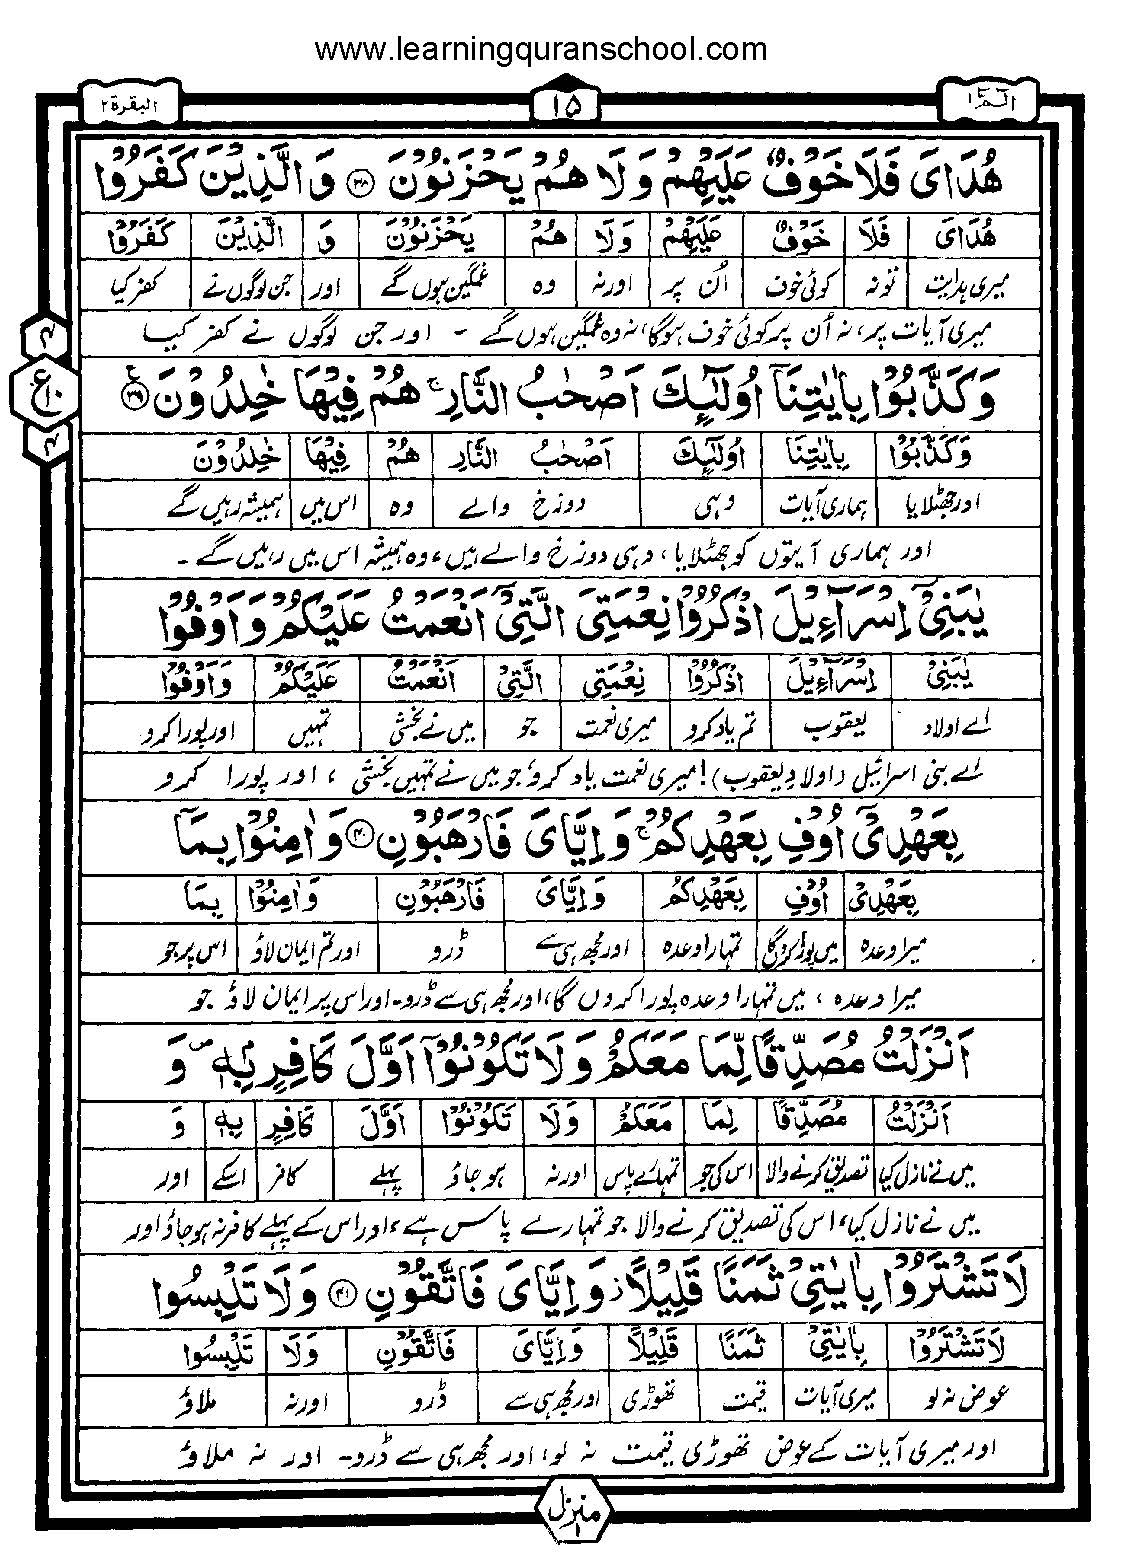 www.learningquranschool.com
الٓمّٓ ١
١٥
البقرة ٢
هُدَایَ فَلَا خَوْفٌ عَلَیْهِمْ وَلَا هُمْ یَحْزَنُوْنَ ﴿٣٨﴾ وَ الَّذِیْنَ کَفَرُوْا
هُدَایَ فَلَا خَوْفٌ عَلَیْهِمْ وَلَا هُمْ یَحْزَنُوْنَ وَ الَّذِیْنَ کَفَرُوْا
میری ہدایت تو نہ کوئی خوف اُن پر اور نہ وہ غمگین ہوں گے اور جن لوگوں نے کفر کیا
میری آیات پر، نہ اُن پر کوئی خوف ہوگا، نہ وہ غمگین ہوں گے - اور جن لوگوں نے کفر کیا
٤
ع ١٠
٤
وَکَذَّبُوْا بِاٰیٰتِنَاۤ اُولٰٓئِکَ اَصْحٰبُ النَّارِ ۚ هُمْ فِیْهَا خٰلِدُوْنَ ﴿٣٩﴾
وَکَذَّبُوْا بِاٰیٰتِنَا اُولٰٓئِکَ اَصْحٰبُ النَّارِ هُمْ فِیْهَا خٰلِدُوْنَ
اور جھٹلایا ہماری آیات وہی دوزخ والے وہ اس میں ہمیشہ رہیں گے
اور ہماری آیتوں کو جھٹلایا، وہی دوزخ والے ہیں، وہ ہمیشہ اس میں رہیں گے -
یٰبَنِیْۤ اِسْرَآءِیْلَ اذْکُرُوْا نِعْمَتِیَ الَّتِیْۤ اَنْعَمْتُ عَلَیْکُمْ وَاَوْفُوْا
یٰبَنِیْۤ اِسْرَآءِیْلَ اذْکُرُوْا نِعْمَتِیَ الَّتِیْ اَنْعَمْتُ عَلَیْکُمْ وَاَوْفُوْا
اے اولاد یعقوب تم یاد کرو میری نعمت جو میں نے بخشی تمہیں اور پورا کرو
اے بنی اسرائیل (اولادِ یعقوب)! میری نعمت یاد کرو، جو میں نے تمہیں بخشی، اور پورا کرو
بِعَهْدِیْۤ اُوْفِ بِعَهْدِکُمْ ۚ وَاِیَّایَ فَارْهَبُوْنِ ﴿٤٠﴾ وَاٰمِنُوْا بِمَاۤ
بِعَهْدِیْ اُوْفِ بِعَهْدِکُمْ وَاِیَّایَ فَارْهَبُوْنِ وَاٰمِنُوْا بِمَا
میرا وعدہ میں پورا کروں گا تمہارا وعدہ اور مجھ ہی سے ڈرو اور تم ایمان لاؤ اس پر جو
میرا وعدہ، میں تمہارا وعدہ پورا کروں گا، اور مجھ ہی سے ڈرو - اور اس پر ایمان لاؤ جو
اَنْزَلْتُ مُصَدِّقًا لِّمَا مَعَکُمْ وَلَا تَکُوْنُوْۤا اَوَّلَ کَافِرٍ بِهٖ ۪ وَ
اَنْزَلْتُ مُصَدِّقًا لِمَا مَعَکُمْ وَلَا تَکُوْنُوْا اَوَّلَ کَافِرٍ بِهٖ وَ
میں نے نازل کیا تصدیق کرنے والا اس کی جو تمہارے پاس اور نہ ہو جاؤ پہلے کافر اسکے اور
میں نے نازل کیا، اس کی تصدیق کرنے والا جو تمہارے پاس ہے، اور اس کے پہلے کافر نہ ہو جاؤ اور
لَا تَشْتَرُوْا بِاٰیٰتِیْ ثَمَنًا قَلِیْلًا ۫ وَاِیَّایَ فَاتَّقُوْنِ ﴿٤١﴾ وَلَا تَلْبِسُوا
لَا تَشْتَرُوْا بِاٰیٰتِیْ ثَمَنًا قَلِیْلًا وَاِیَّایَ فَاتَّقُوْنِ وَلَا تَلْبِسُوا
عوض نہ لو میری آیات قیمت تھوڑی اور مجھ ہی سے ڈرو اور نہ ملاؤ
اور میری آیات کے عوض تھوڑی قیمت نہ لو، اور مجھ ہی سے ڈرو - اور نہ ملاؤ
منزل ١